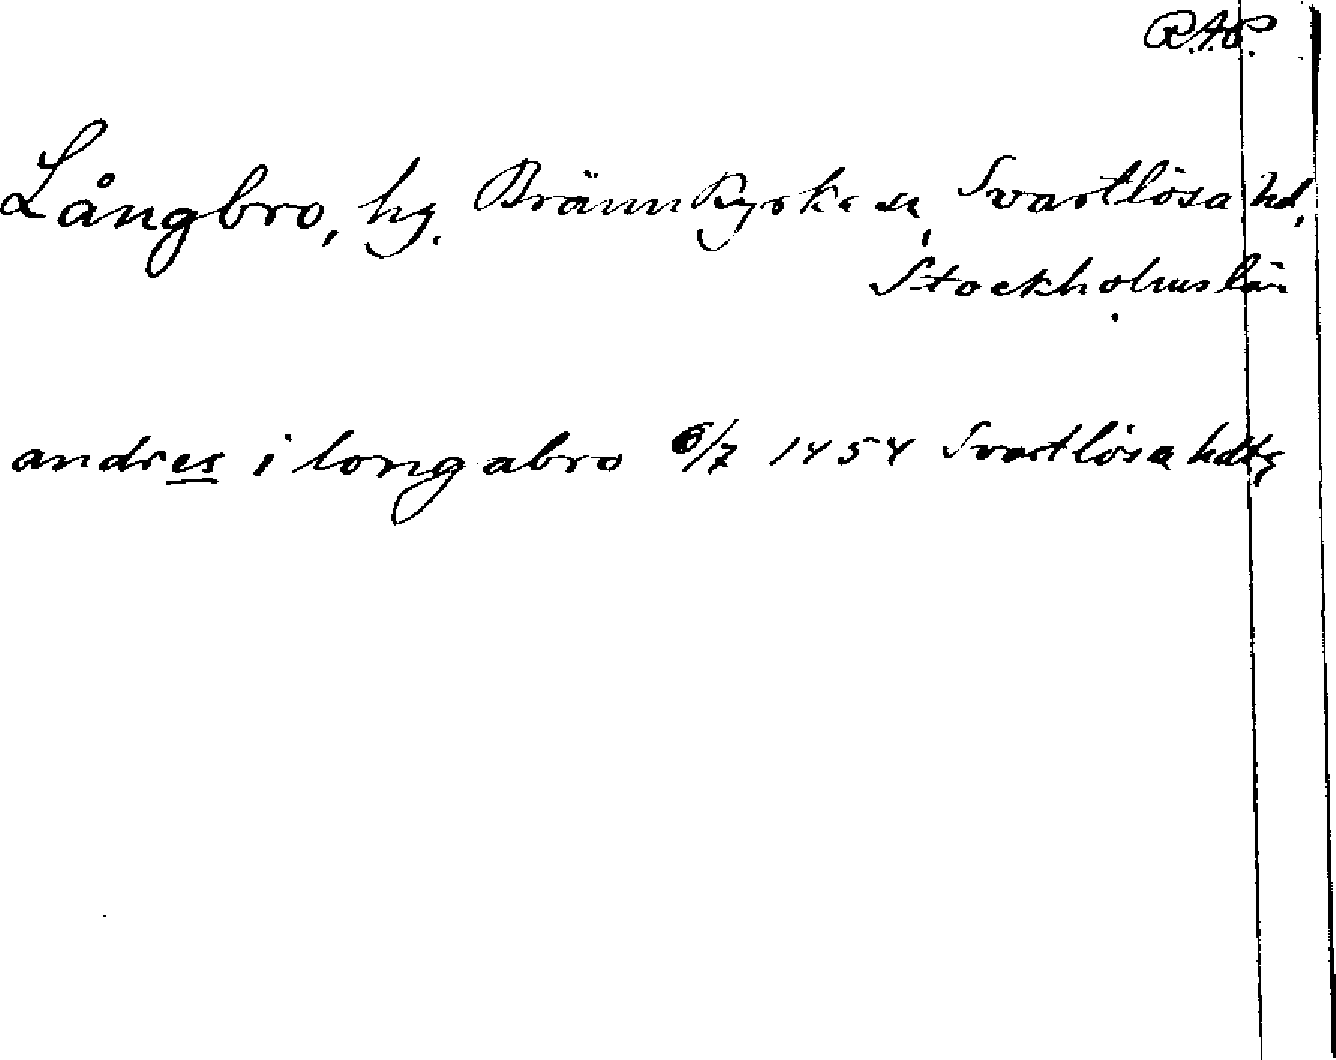 R.A.P.
Långbro, hg. Brännkyrka sn, Svartlösa hd,
Stockholms län
andres i longabro 6/7 1454 Svartlösa hdtg